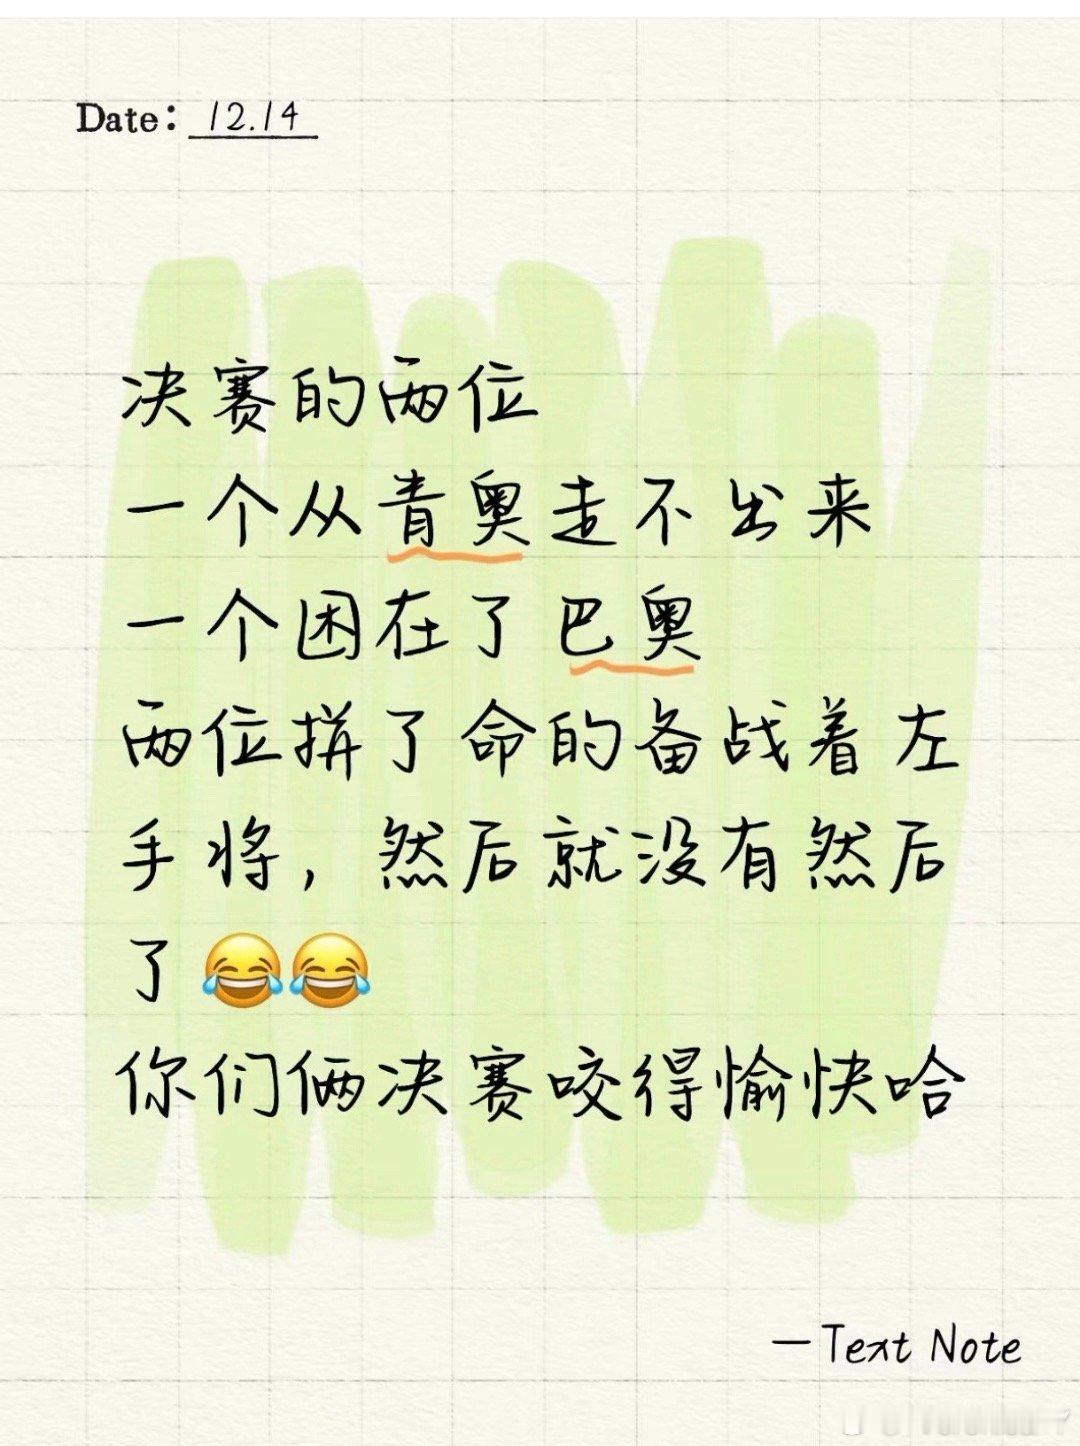 Date: 12.14
决赛的两位
一个从青奥走不出来
一个困在了巴奥
两位拼了命的备战着左
手将，然后就没有然后
了😂😂
你们俩决赛咬得愉快哈
—Text Note